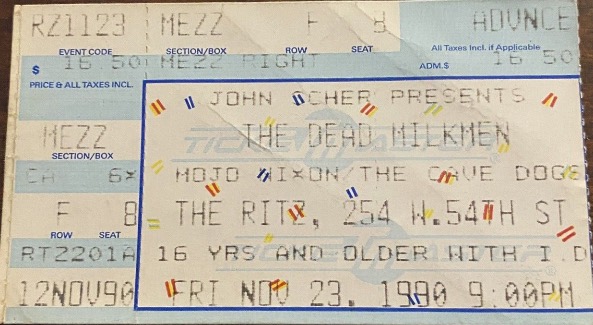 RZ1123 MEZZ F 8 ADVNCE
EVENT CODE SECTION/BOX ROW SEAT All Taxes Incl. if Applicable
$ 16 50 MEZZ RIGHT ADM.$ 16 50
PRICE & ALL TAXES INCL.
JOHN SCHER PRESENTS
MEZZ THE DEAD MILKMEN
SECTION/BOX
CA 6× MOJO NIXON/THE CAVE DOGS
F 8 THE RITZ, 254 W.54TH ST
ROW SEAT
RTZ201A 16 YRS AND OLDER WITH I.D
12NOV90 FRI NOV 23. 1990 9:00PM
TICKETMASTER
TICKETMASTER